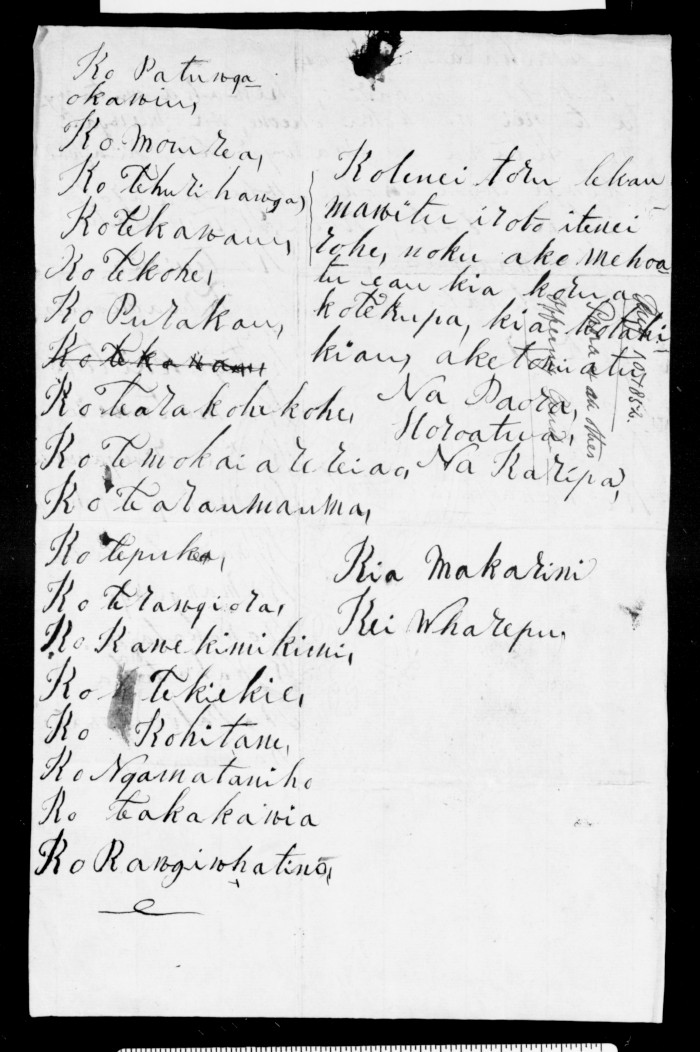 Ko Patunga
okawiu,
Ko Mourea,
Ko tehurihanga,
Ko tekawau,
Ko tekohe,
Ko Purakau,
Ko tekawau
Ko tearakohekohe,
Ko temokaiarereiao,
Ko tearaumauma,
Ko tepuka,
Ko terawgiora,
Ko Kawekimikimi,
Ko tekiekie,
Ko Kohitane,
Ko Ngamataniho
Ko teakakawia
Ko Rawgiwhatino,
Kotenei toru tekau
mawitu iroto itenei
rohe, noku ake mehoa
tu eau kia korua
kotekupa, kia kotahi
kiau, ake tonu atu
Na Paora,
Horoatua,
Na Karipa,
Kia Makarini
Kei Wharepu.
Paora & an other
Offering land